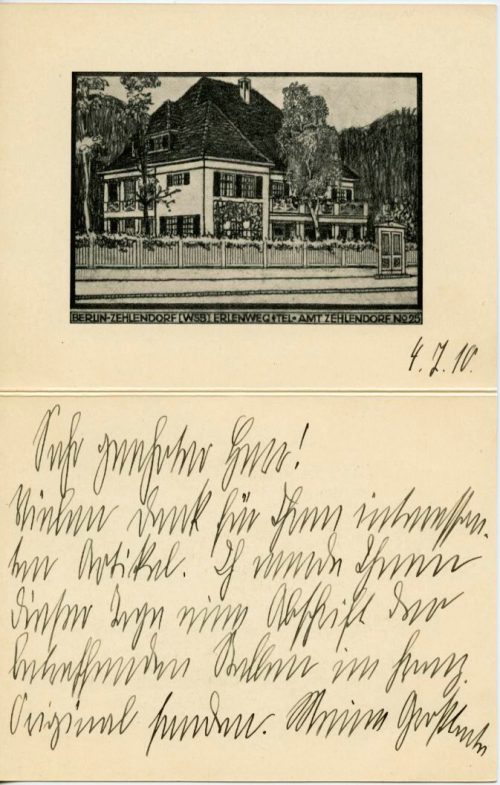 BERLIN-ZEHLENDORF [WSB] ERLENWEG • TEL • AMT ZEHLENDORF No 25
4. 7. 10.
Sehr geehrter Herr!
Vielen Dank für Ihren interessan-
ten Artikel. Ich werde Ihnen
dieser Tage eine Abschrift der
betreffenden Stellen im franz.
Original senden. Meine